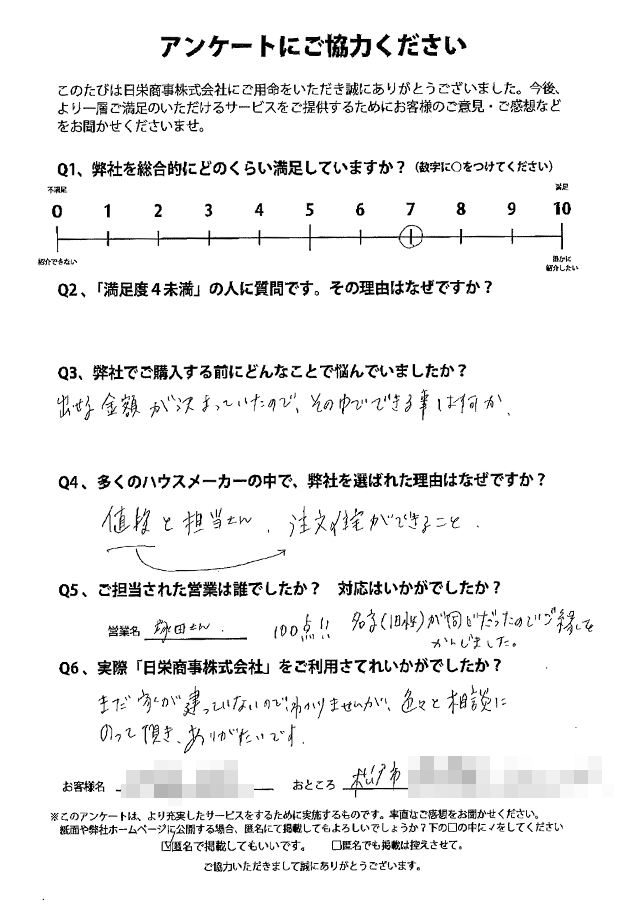 アンケートにご協力ください
このたびは日栄商事株式会社にご用命をいただき誠にありがとうございました。今後、
より一層ご満足のいただけるサービスをご提供するためにお客様のご意見・ご感想など
をお聞かせくださいませ。
Q1、弊社を総合的にどのくらい満足していますか？（数字に○をつけてください）
不満足 満足
0 1 2 3 4 5 6 7 8 9 10
紹介できない 誰かに
紹介したい
Q2、「満足度４未満」の人に質問です。その理由はなぜですか？
Q3、弊社でご購入する前にどんなことで悩んでいましたか？
出せる金額が決まっていたので、その中でできる事は何か、
Q4、多くのハウスメーカーの中で、弊社を選ばれた理由はなぜですか？
値段と担当さん、注文住宅ができること、
Q5、ご担当された営業は誰でしたか？　対応はいかがでしたか？
営業名 塚田さん 100点!! 名字(旧姓)が同じだったのでご縁を
かんじました。
Q6、実際「日栄商事株式会社」をご利用さてれいかがでしたか？
まだ家が建っていないので、わかりませんが、色々と相談に
のって頂き、ありがたいです。
お客様名 おところ 松戸市
※このアンケートは、より充実したサービスをするために実施するものです。率直なご感想をお聞かせください。
紙面や弊社ホームページに公開する場合、匿名にて掲載してもよろしいでしょうか？下の□の中に✓をしてください
☑匿名で掲載してもいいです。 □匿名でも掲載は控えさせて。
ご協力いただきまして誠にありがとうございます。